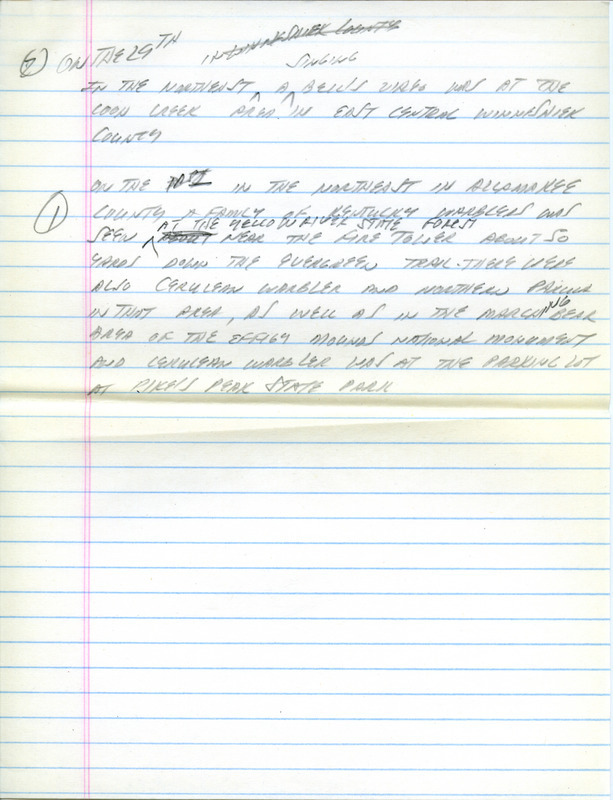 ② ON THE 29TH IN WINNESHIEK COUNTY
SINGING
IN THE NORTHEAST A BELL'S VIREO WAS AT THE
COON CREEK AREA IN EAST CENTRAL WINNESHIEK
COUNTY
① ON THE 1ST IN THE NORTHEAST IN ALLAMAKEE
COUNTY A FAMILY OF KENTUCKY WARBLERS WAS
AT THE YELLOW RIVER STATE FOREST
SEEN ABOUT NEAR THE FIRE TOWER ABOUT 50
YARDS DOWN THE EVERGREEN TRAIL. THERE WERE
ALSO CERULEAN WARBLER AND NORTHERN PARULA
IN THAT AREA, AS WELL AS IN THE MARCHING BEAR
AREA OF THE EFFIGY MOUNDS NATIONAL MONUMENT
AND CERULEAN WARBLER WAS AT THE PARKING LOT
AT PIKES PEAK STATE PARK